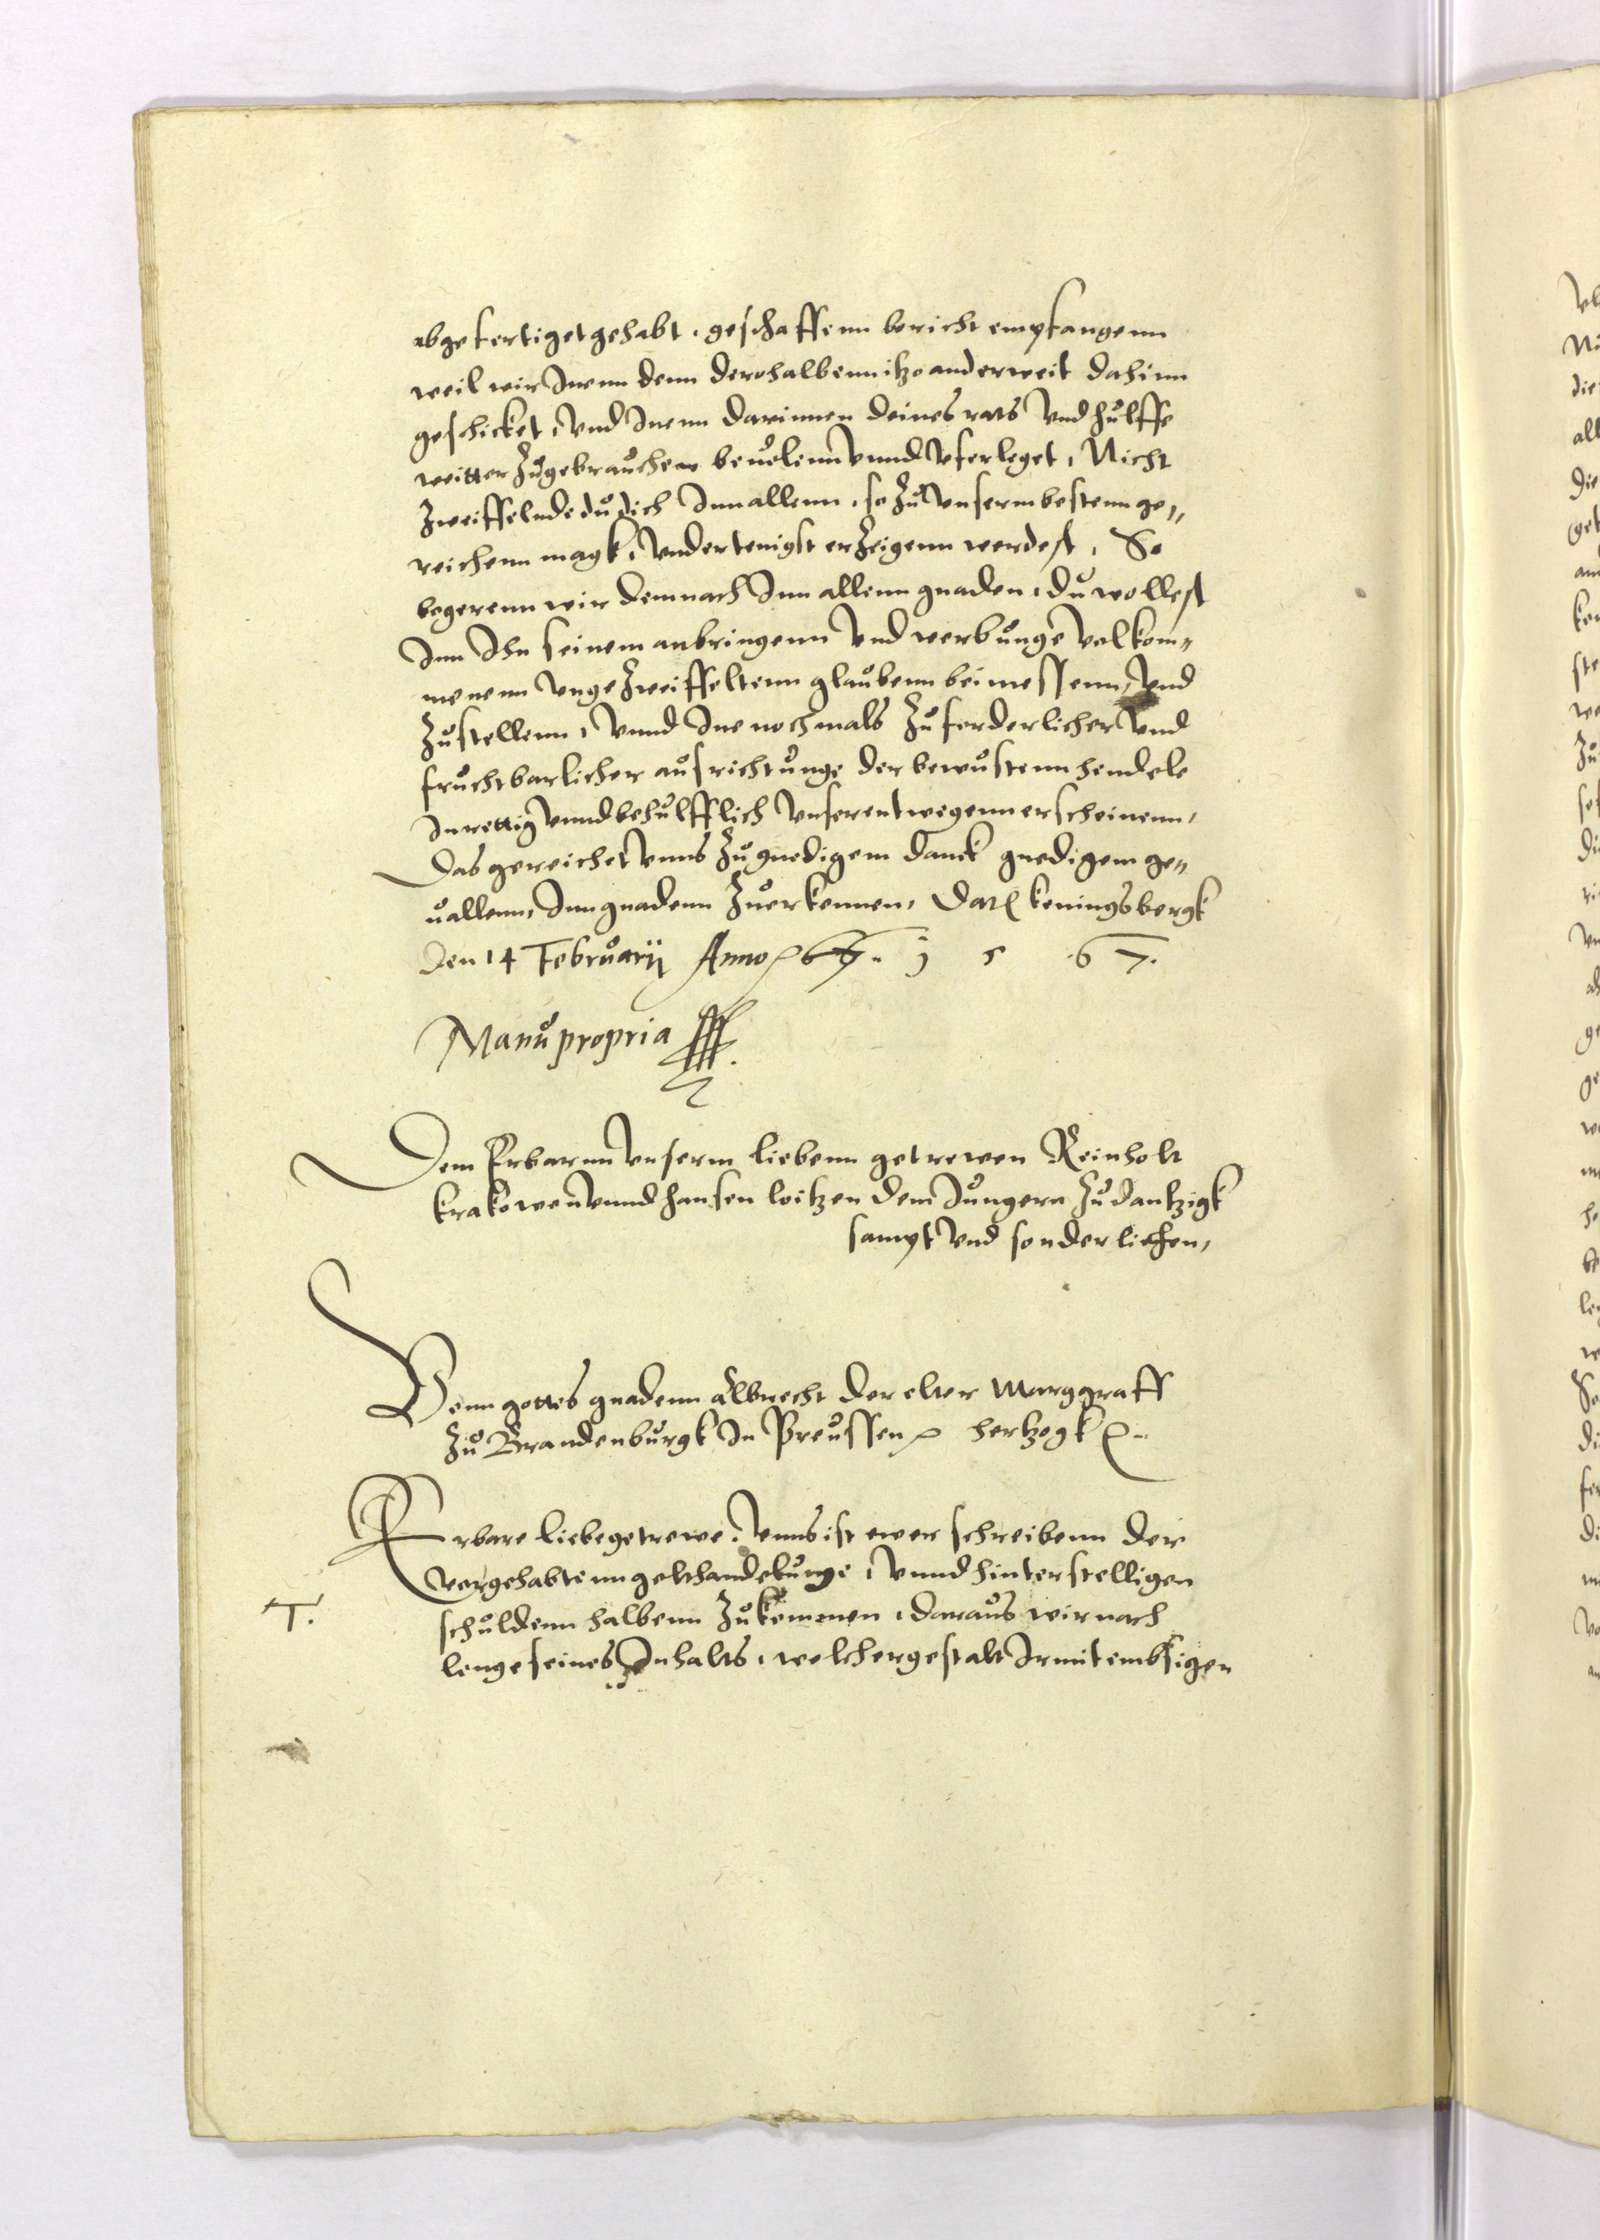 abgefertiget gehabt, geschaffenn bericht empfangenn
weil wir Inenn denn derohalbenn itzo anderweit dahinn
geschicket, vnd Inenn darinnen deines rats vnd hulffe
weitter zugebrauchen beuolenn vnnd vferleget, Nicht
zweiffelnde du dich Inn allenn, so zu vnserm bestenn ge„
reichenn magk, vndertenigst erzeigenn werdest, So
begerenn wir demnach Inn allenn gnaden, du wollest
Inn Ihn seinem anbringenn vnd werbunge volkom„
menenn vngezweiffeltenn glaubenn beimessenn, vnd
zustellenn, vnnd Ine nochmals zu forderlicher vnd
fruchtbarlicher ausrichtunge der bewustenn hendele
Inrettig vnnd behulfflich vnserentwegenn erscheinenn,
Das gereichet vnns zu gnedigem danck gnedigem ge„
uallenn, Inn gnadenn zuerkennen, Dat[um] Koningsbergk
den 14 Februarij Anno 67. 1 5 67.
Manu propria
Dem Erbarnn vnserm liebenn getrewen Reinholt
Krakowen vnnd Hansen Loitzen dem Jungern zu Dantzigk
sampt vnd sonderlichen,
Vonn gottes gnadenn Albrecht der elter Marggraff
zu Brandenburgk In Preussen hertzogk
Erbare liebe getrewe. Vnns ist ewer schreibenn der
vorgehabtenn gelthandelunge, vnnd hinterstelligen
T.
schuldenn halbenn zukommen, daraus wir nach
lenge seines Inhalts, welcher gestalt Ir mit embsigen